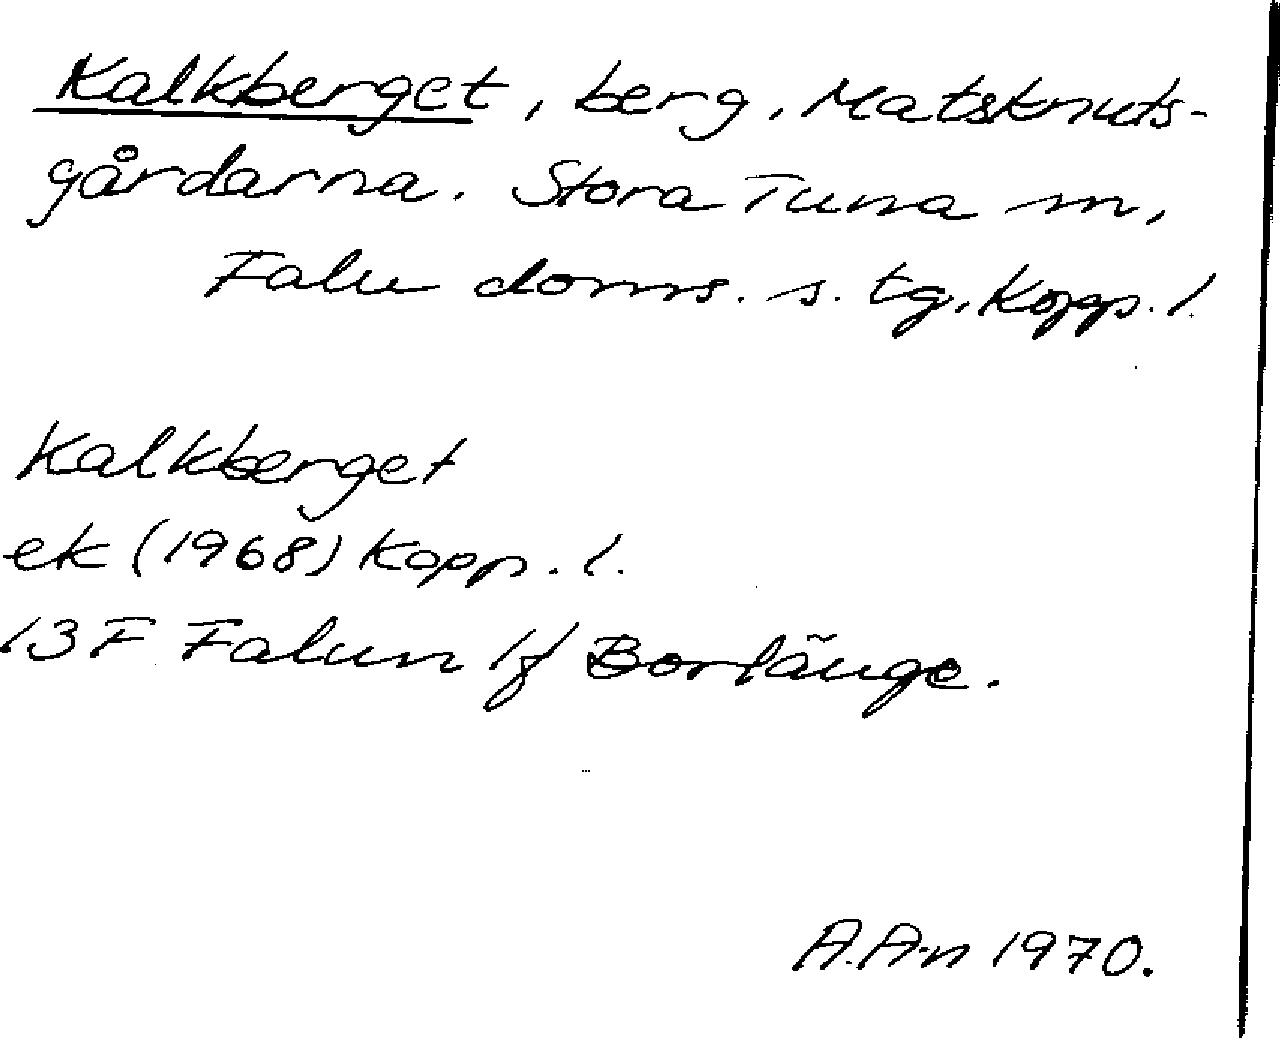 Kalkberget, berg, Matsknuts-
gårdarna. Stora Tuna sn,
Falu doms. s. tg, Kopp. l.
Kalkberget
ek (1968) Kopp. l.
13F Falun Borlänge.
A.A-n 1970.